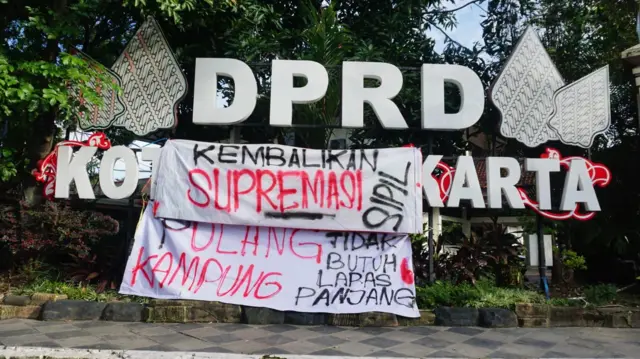 DPRD
KOT
KARTA
KEMBALIKAN
SUPREMASI
SIPIL
PULANG
KAMPUNG
TIDAK
BUTUH
LAPAS
PANJANG